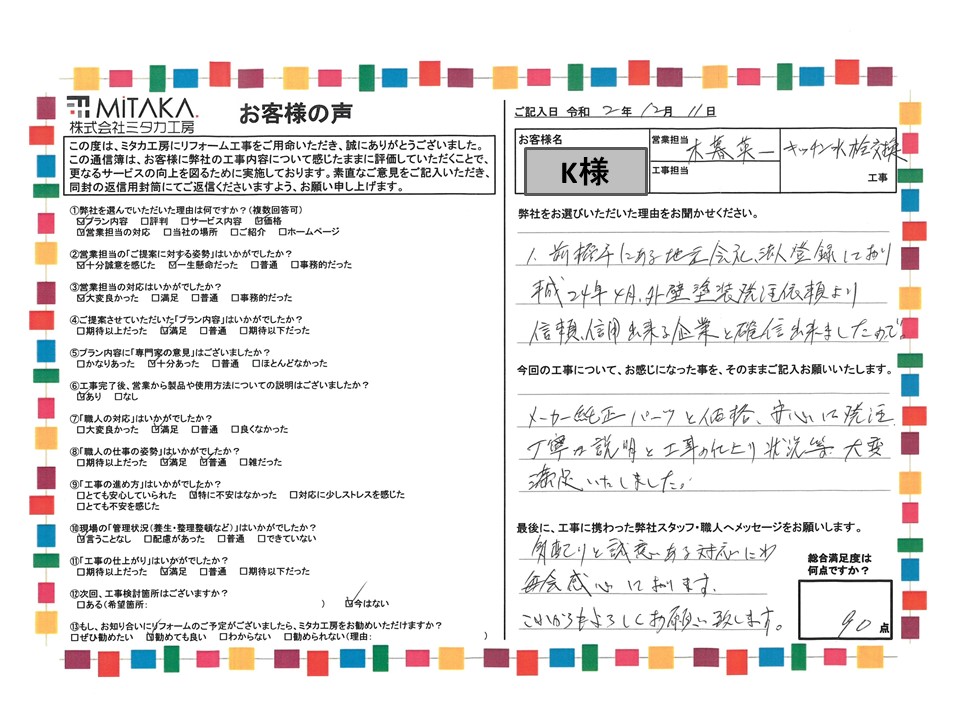 MiTAKA.
株式会社ミタカ工房
お客様の声
この度は、ミタカ工房にリフォーム工事をご用命いただき、誠にありがとうございました。
この通信簿は、お客様に弊社の工事内容について感じたままに評価していただくことで、
更なるサービスの向上を図るために実施しております。素直なご意見をご記入いただき、
同封の返信用封筒にてご返信くださいますよう、お願い申し上げます。
①弊社を選んでいただいた理由は何ですか?(複数回答可)
☑プラン内容 □評判 □サービス内容 ☑価格
☑営業担当の対応 □当社の場所 □ご紹介 □ホームページ
②営業担当の「ご提案に対する姿勢」はいかがでしたか?
☑十分誠意を感じた ☑一生懸命だった □普通 □事務的だった
③営業担当の対応はいかがでしたか?
☑大変良かった □満足 □普通 □事務的だった
④ご提案させていただいた「プラン内容」はいかがでしたか?
□期待以上だった ☑満足 □普通 □期待以下だった
⑤プラン内容に「専門家の意見」はございましたか?
□かなりあった ☑十分あった □普通 □ほとんどなかった
⑥工事完了後、営業から製品や使用方法についての説明はございましたか?
☑あり □なし
⑦「職人の対応」はいかがでしたか?
□大変良かった ☑満足 □普通 □良くなかった
⑧「職人の仕事の姿勢」はいかがでしたか?
□期待以上だった ☑満足 ☑普通 □雑だった
⑨「工事の進め方」はいかがでしたか?
□とても安心していられた ☑特に不安はなかった □対応に少しストレスを感じた
□とても不安を感じた
⑩現場の「管理状況(養生・整理整頓など)」はいかがでしたか?
☑言うことなし □配慮があった □普通 □できていない
⑪「工事の仕上がり」はいかがでしたか?
□期待以上だった ☑満足 □普通 □期待以下だった
⑫次回、工事検討箇所はございますか?
□ある(希望箇所: ) ☑今はない
⑬もし、お知り合いにリフォームのご予定がございましたら、ミタカ工房をお勧めいただけますか?
□ぜひ勧めたい ☑勧めても良い □わからない □勧められない(理由: )
ご記入日 令和 2年 12月 11日
お客様名
K様
営業担当 木暮 栄一
工事担当
キッチン水栓交換
工事
弊社をお選びいただいた理由をお聞かせください。
1.前橋市にある地元会社、法人登録しており
平成24年4月、外壁塗装発注依頼より
信頼、信用出来る企業と確信出来ましたので。
今回の工事について、お感じになった事を、そのままご記入お願いいたします。
メーカー純正パーツと価格、安心して発注
丁寧な説明と工事の仕上り状況等大変
満足いたしました。
最後に、工事に携わった弊社スタッフ・職人へメッセージをお願いします。
気配りと誠意ある対応には
毎会感心しております。
これからもよろしくお願い致します。
総合満足度は
何点ですか?
90点